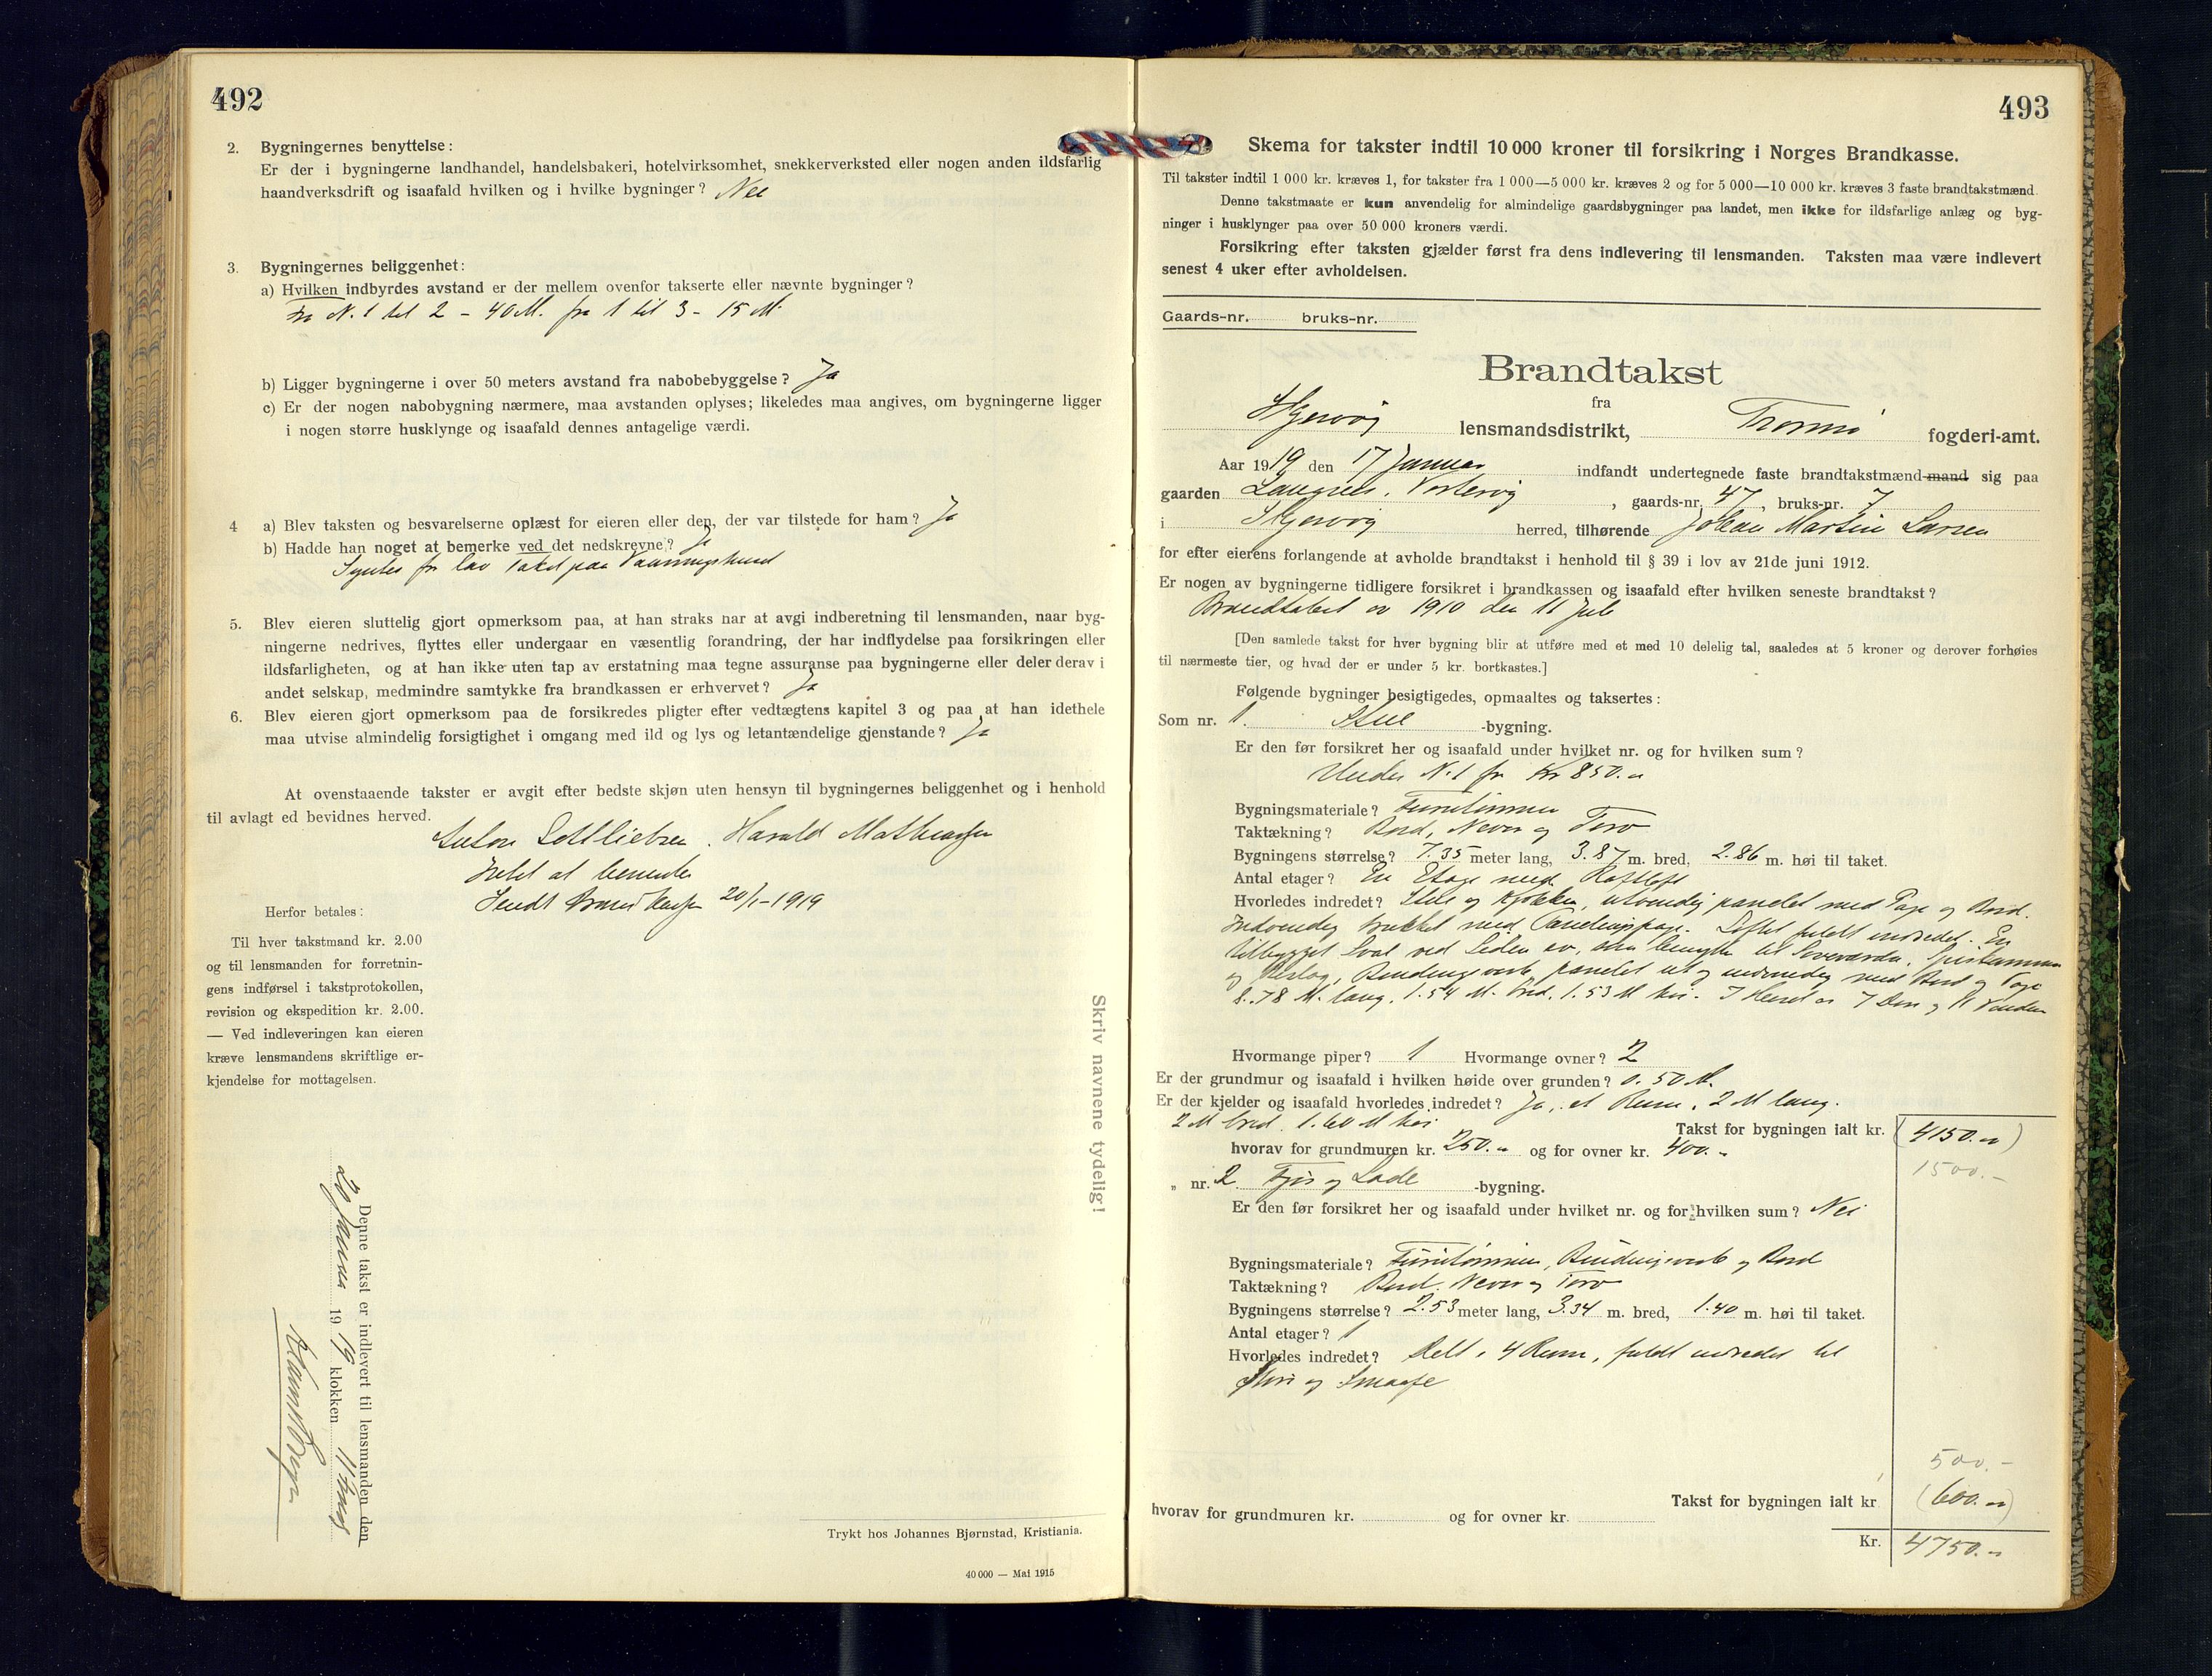 492
2. Bygningernes benyttelse:
Er der i bygningerne landhandel, handelsbakeri, hotelvirksomhet, snekkerverksted eller nogen anden ildsfarlig
haandverksdrift og isaafald hvilken og i hvilke bygninger? Nei
3. Bygningernes beliggenhet:
a) Hvilken indbyrdes avstand er der mellem ovenfor takserte eller nævnte bygninger?
Fra N. 1 til 2 - 40 M. fra 1 til 3 - 15 M.
b) Ligger bygningerne i over 50 meters avstand fra nabobebyggelse? Ja
c) Er der nogen nabobygning nærmere, maa avstanden oplyses; likeledes maa angives, om bygningerne ligger
i nogen større husklynge og isaafald dennes antagelige værdi.
4 a) Blev taksten og besvarelserne oplæst for eieren eller den, der var tilstede for ham? Ja
b) Hadde han noget at bemerke ved det nedskrevne? Ja
Syntes for lav Takst paa Vaaningshuset
5. Blev eieren sluttelig gjort opmerksom paa, at han straks har at avgi indberetning til lensmanden, naar byg-
ningerne nedrives, flyttes eller undergaar en væsentlig forandring, der har indflydelse paa forsikringen eller
ildsfarligheten, og at han ikke uten tap av erstatning maa tegne assuranse paa bygningerne eller deler derav i
andet selskap, medmindre samtykke fra brandkassen er erhvervet? Ja
6. Blev eieren gjort opmerksom paa de forsikredes pligter efter vedtægtens kapitel 3 og paa at han idethele
maa utvise almindelig forsigtighet i omgang med ild og lys og letantændelige gjenstande? Ja
At ovenstaaende takster er avgit efter bedste skjøn uten hensyn til bygningernes beliggenhet og i henhold
til avlagt ed bevidnes herved.
Anton Gottliebsen. Harald Mathiassen
Intet at bemerke
Sendt Brandkassen 20/1-1919
Herfor betales:
Til hver takstmand kr. 2.00
og til lensmanden for forretnin-
gens indførsel i takstprotokollen,
revision og ekspedition kr. 2.00.
— Ved indleveringen kan eieren
kræve lensmandens skriftlige er-
kjendelse for mottagelsen.
Skriv navnene tydelig!
Denne takst er indlevert til lensmanden den
20 Januar 1919 klokken 11
Trykt hos Johannes Bjørnstad, Kristiania.
40 000 — Mai 1915
493
Skema for takster indtil 10 000 kroner til forsikring i Norges Brandkasse.
Til takster indtil 1 000 kr. kræves 1, for takster fra 1 000—5 000 kr. kræves 2 og for 5 000—10 000 kr. kræves 3 faste brandtakstmænd.
Denne takstmaate er kun anvendelig for almindelige gaardsbygninger paa landet, men ikke for ildsfarlige anlæg og byg-
ninger i husklynger paa over 50 000 kroners værdi.
Forsikring efter taksten gjælder først fra dens indlevering til lensmanden. Taksten maa være indlevert
senest 4 uker efter avholdelsen.
Gaards-nr. bruks-nr.
Brandtakst
fra
Skjervøy lensmandsdistrikt, Tromsø fogderi-amt.
Aar 1919 den 17 Januar indfandt undertegnede faste brandtakstmænd-mand sig paa
gaarden Langnes, Vorterøy, gaards-nr. 47, bruks-nr. 7
i Skjervøy herred, tilhørende Johan Martin Larsen
for efter eierens forlangende at avholde brandtakst i henhold til § 39 i lov av 21de juni 1912.
Er nogen av bygningerne tidligere forsikret i brandkassen og isaafald efter hvilken seneste brandtakst?
Brandtakst av 1910 den 11 Juli
[Den samlede takst for hver bygning blir at utføre med et med 10 delelig tal, saaledes at 5 kroner og derover forhøies
til nærmeste tier, og hvad der er under 5 kr. bortkastes.]
Følgende bygninger besigtigedes, opmaaltes og taksertes:
Som nr. 1. Stue -bygning.
Er den før forsikret her og isaafald under hvilket nr. og for hvilken sum?
Under N. 1 for Kr 850.-
Bygningsmateriale? Furutømmer
Taktækning? Bord, Never og Torv
Bygningens størrelse? 7.35 meter lang, 3.87 m. bred, 2.86 m. høi til taket.
Antal etager? En Etage med Kottloft
Hvorledes indredet? Stue og Kjøkken, utvendig panelet med Pap og Bord.
Indvendig trukket med Pap. Loftet fuldt indredet. En
tilbygget Sval ved Siden av, som benyttes til Soveværelse, Spiskammer
og Bislag, Bindingsverk, panelet ut og indvendig med Bord og Pap
8.78 M. lang, 1.54 M. bred, 1.53 M høi. I Huset er 7 Døre og 11 Vinduer
Hvormange piper? 1 Hvormange ovner? 2
Er der grundmur og isaafald i hvilken høide over grunden? 0.50 M.
Er der kjelder og isaafald hvorledes indredet? Ja, et Rum, 2 M lang.
2 M bred. 1.60 M høi
Takst for bygningen ialt kr. (4150.-)
hvorav for grundmuren kr. 250.- og for ovner kr. 400.-
1500.-
„ nr. 2 Fjøs og Lade -bygning.
Er den før forsikret her og isaafald under hvilket nr. og for hvilken sum? Nei
Bygningsmateriale? Furutømmer, Bindingsverk og Bord
Taktækning? Bord, Never og Torv
Bygningens størrelse? 2.53 meter lang, 3.34 m. bred, 1.40 m. høi til taket.
Antal etager? 1
Hvorledes indredet? Delt i 4 Rum, fuldt indredet til
og Smaafe
500.-
Takst for bygningen ialt kr (600.-)
hvorav for grundmuren kr. og for ovner kr.
Kr. 4750.-